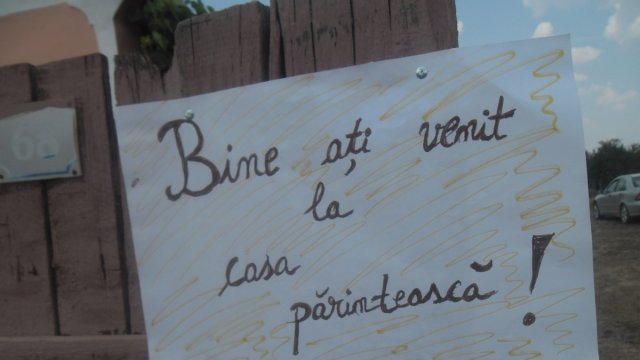 Bine ați venit
la
casa
părintească!